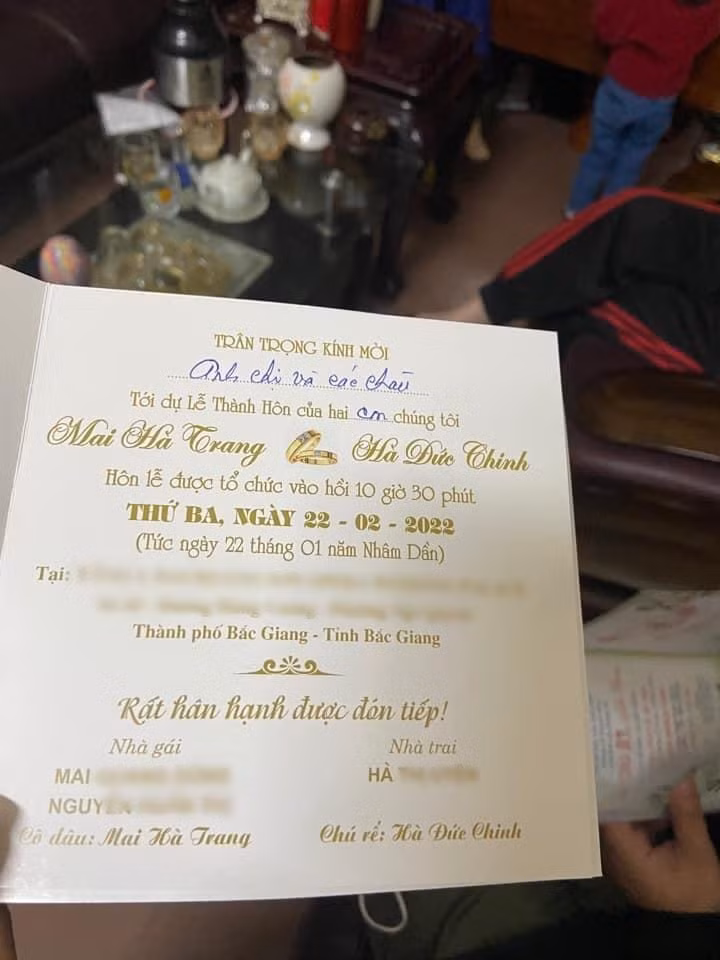 TRÂN TRỌNG KÍNH MỜI
Anh chị và các cháu
Tới dự Lễ Thành Hôn của hai con chúng tôi
Mai Hà Trang Hà Đức Chinh
Hôn lễ được tổ chức vào hồi 10 giờ 30 phút
THỨ BA, NGÀY 22 - 02 - 2022
(Tức ngày 22 tháng 01 năm Nhâm Dần)
Tại:
Thành phố Bắc Giang - Tỉnh Bắc Giang
Rất hân hạnh được đón tiếp!
Nhà gái Nhà trai
MAI HÀ
NGUYỄN
Cô dâu: Mai Hà Trang Chú rể: Hà Đức Chinh